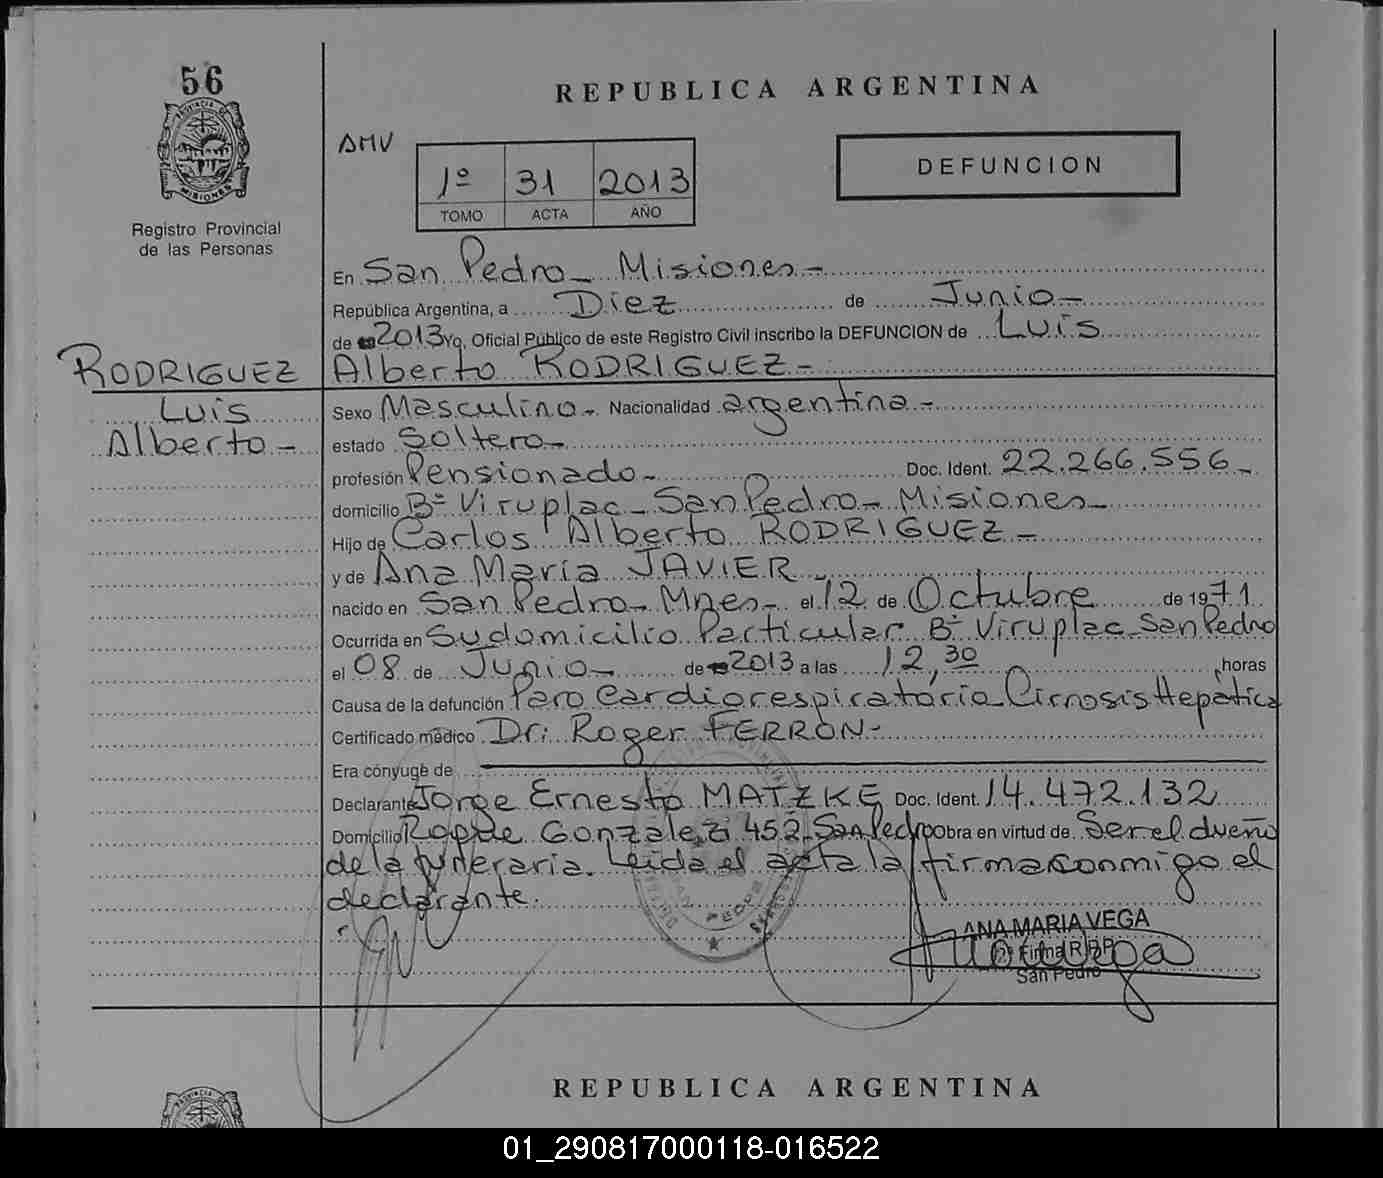 56
PROVINCIA DE
MISIONES
Registro Provincial
de las Personas
RODRIGUEZ
Luis
Alberto -
REPUBLICA ARGENTINA
AMV
1º 31 2013
TOMO ACTA AÑO
DEFUNCION
En San Pedro - Misiones -
República Argentina, a Diez de Junio -
de 2013 Yo, Oficial Público de este Registro Civil inscribo la DEFUNCION de Luis
Alberto RODRIGUEZ -
Sexo Masculino - Nacionalidad argentina -
estado Soltero -
profesión Pensionado - Doc. Ident. 22.266.556 -
domicilio Bº Viruplac - San Pedro - Misiones -
Hijo de Carlos Alberto RODRIGUEZ -
y de Ana Maria JAVIER -
nacido en San Pedro - Mnes - el 12 de Octubre de 1971
Ocurrida en Su domicilio Particular Bº Viruplac - San Pedro
el 08 de Junio - de 2013 a las 12,30 horas
Causa de la defunción Paro Cardiorespiratorio Cirrosis Hepática
Certificado médico Dr: Roger FERRON -
Era cónyuge de
Declarante Jorge Ernesto MATZKE Doc. Ident. 14.472.132
Domicilio Roque Gonzalez 452 - San Pedro obra en virtud de Ser el dueño
de la funeraria. Leida el acta la firma conmigo el
declarante.
ANA MARIA VEGA
Firma R.P.P.
San Pedro
REPUBLICA ARGENTINA
01_290817000118-016522